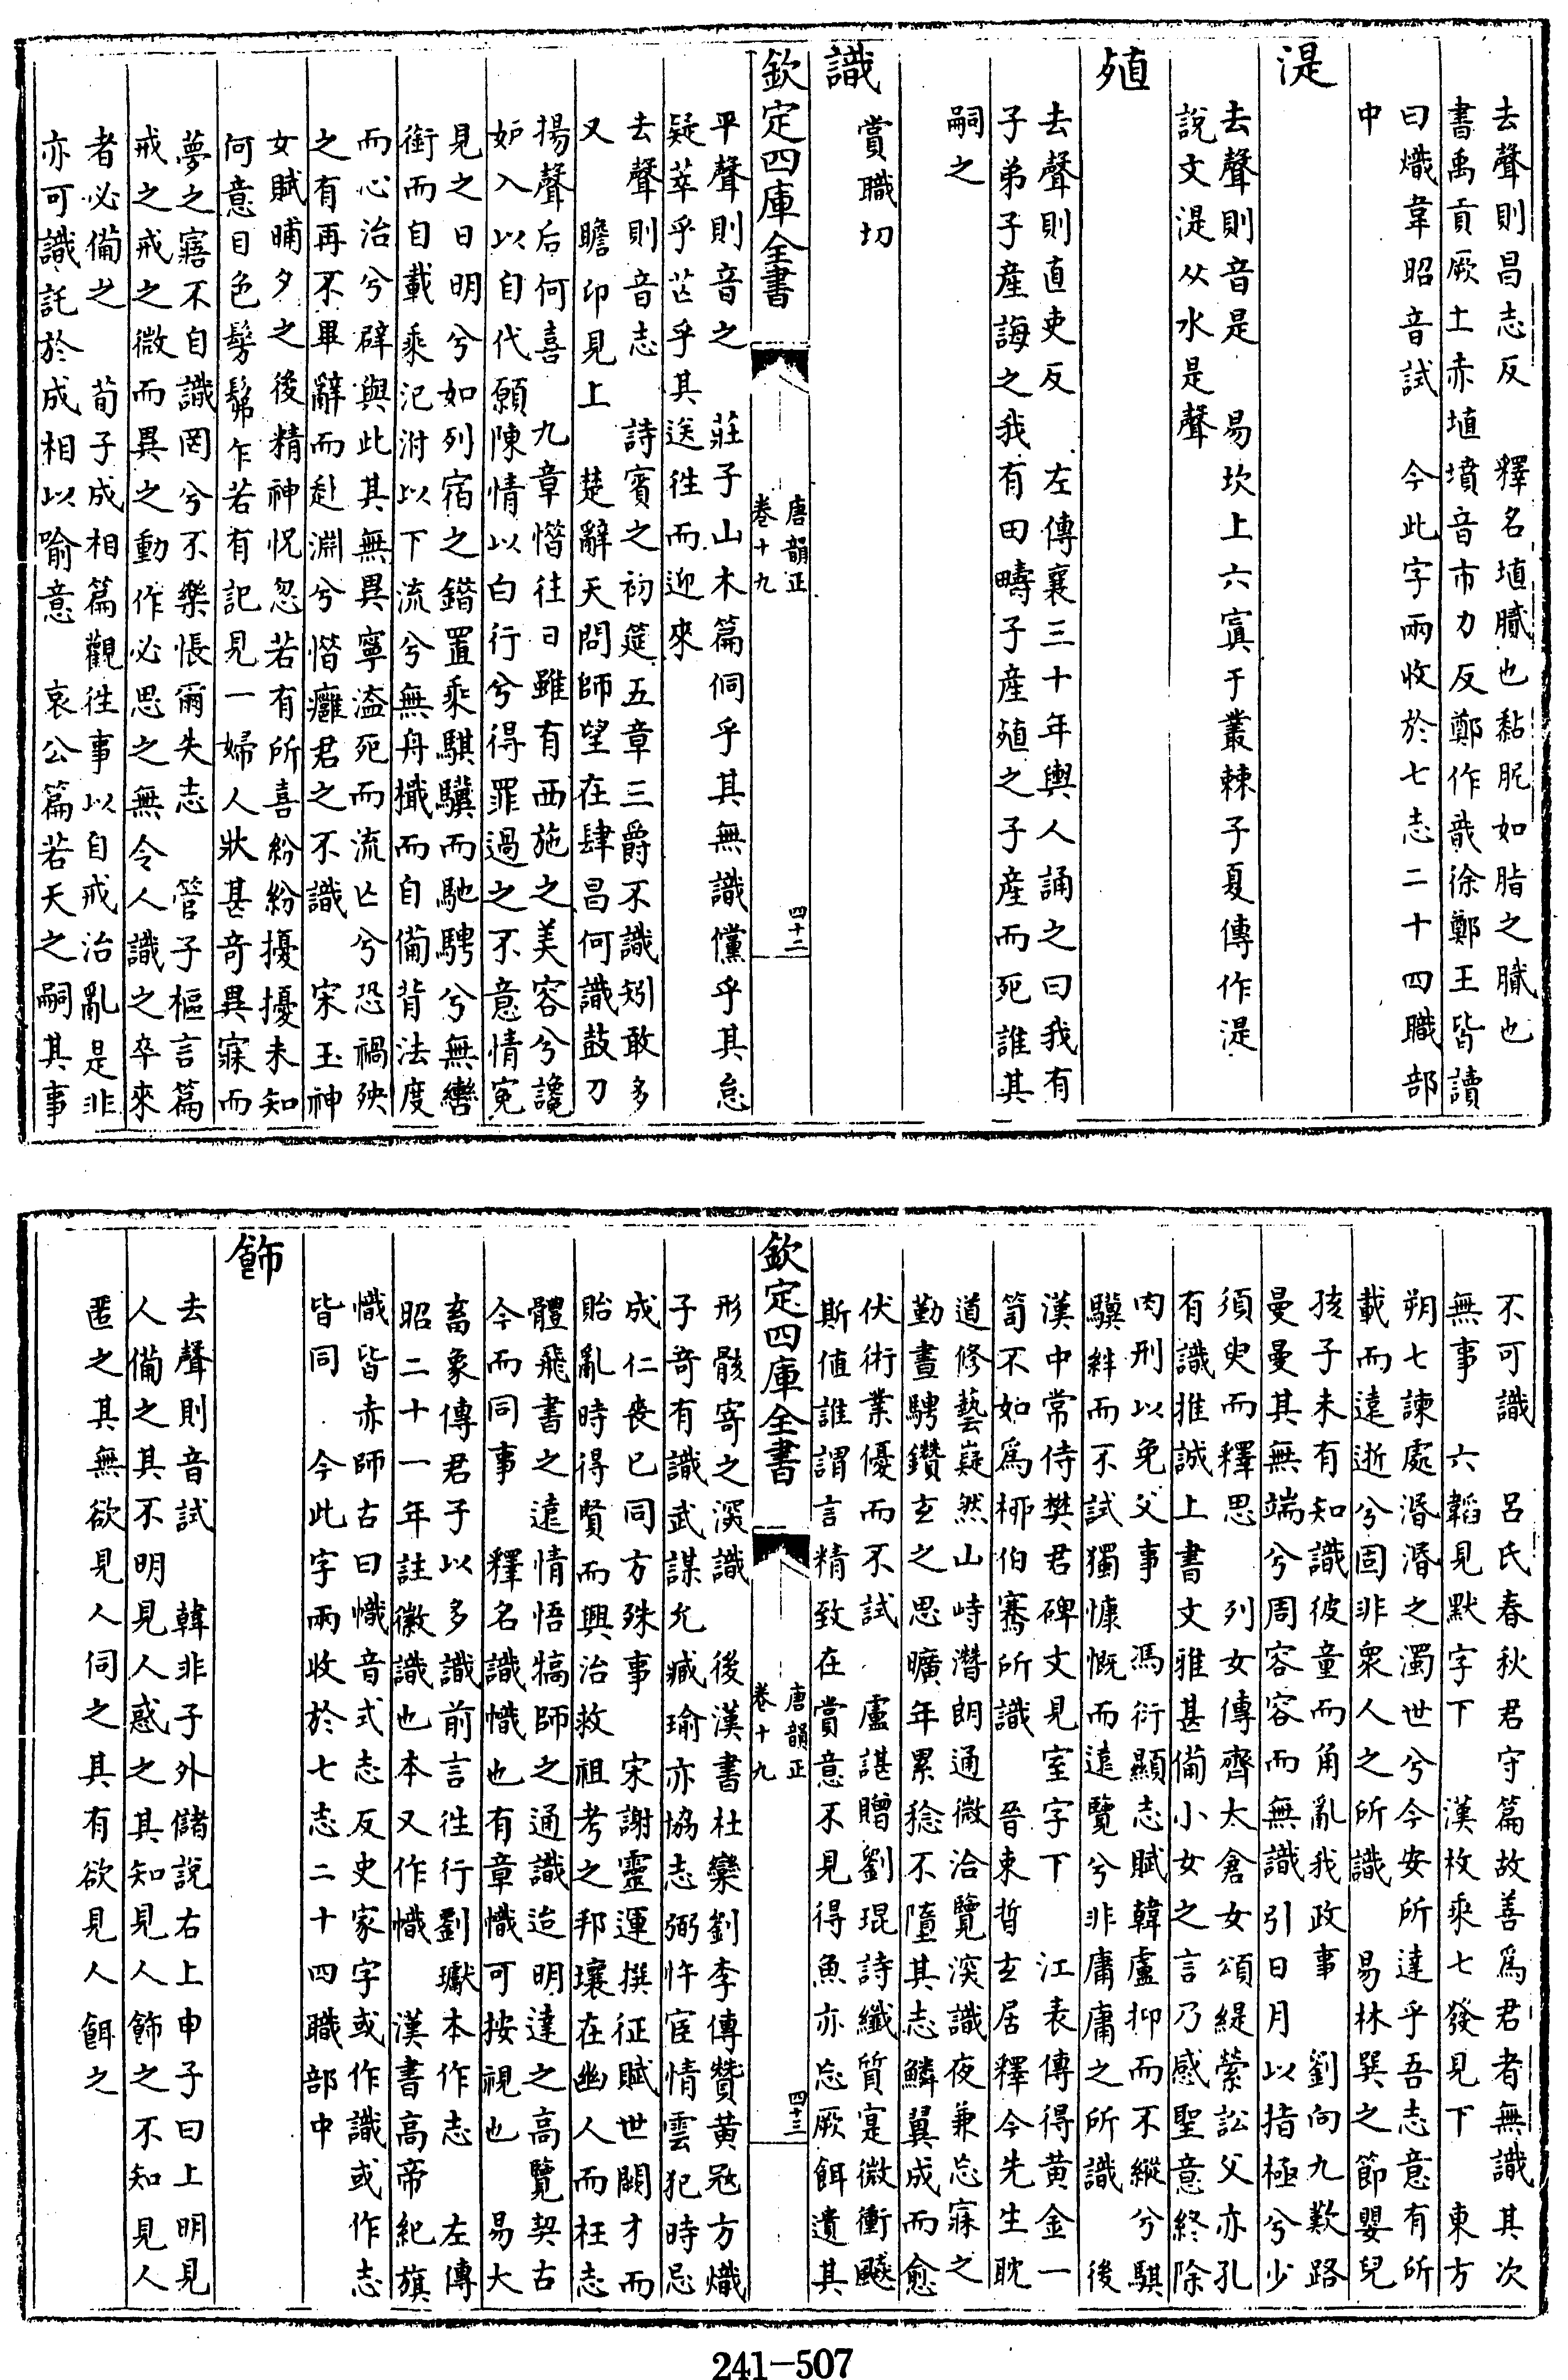 去聲則昌志反　釋名埴膩也黏胒如脂之膩也
書禹貢厥土赤埴墳音市力反鄭作戠徐鄭王皆讀
曰熾韋昭音試　今此字兩收於七志二十四職部
中
湜
去聲則音是　易坎上六寘于叢棘子夏傳作湜
說文湜从水是聲
殖
去聲則直吏反　左傳襄三十年輿人誦之曰我有
子弟子產誨之我有田疇子產殖之子產而死誰其
嗣之
識　賞職切
欽定四庫全書　唐韻正　卷十九　四十二
平聲則音之　莊子山木篇侗乎其無識儻乎其怠
疑萃乎芒乎其送往而迎來
去聲則音志　詩賓之初筵五章三爵不識矧敢多
又　瞻卬見上　楚辭天問師望在肆昌何識鼓刀
揚聲后何喜　九章惜往日雖有西施之美容兮讒
妒入以自代願陳情以白行兮得罪過之不意情冤
見之日明兮如列宿之錯置乘騏驥而馳騁兮無轡
銜而自載乘氾泭以下流兮無舟檝而自備背法度
而心治兮辟與此其無異寧溘死而流亡兮恐禍殃
之有再不畢辭而赴淵兮惜癰君之不識　宋玉神
女賦晡夕之後精神怳忽若有所喜紛紛擾擾未知
何意目色髣髴乍若有記見一婦人狀甚奇異寐而
夢之寤不自識罔兮不樂悵爾失志　管子樞言篇
戒之戒之微而異之動作必思之無令人識之卒來
者必備之　荀子成相篇觀往事以自戒治亂是非
亦可識託於成相以喻意　哀公篇若天之嗣其事
不可識　呂氏春秋君守篇故善為君者無識其次
無事　六韜見默字下　漢枚乘七發見下　東方
朔七諫處湣湣之濁世兮今安所達乎吾志意有所
載而遠逝兮固非衆人之所識　易林巽之節嬰兒
孩子未有知識彼童而角亂我政事　劉向九歎路
曼曼其無端兮周容容而無識引日月以指極兮少
須臾而釋思　列女傳齊太倉女頌緹縈訟父亦孔
有識推誠上書文雅甚備小女之言乃感聖意終除
肉刑以免父事　馮衍顯志賦韓盧抑而不縱兮騏
驥絆而不試獨慷慨而遠覽兮非庸庸之所識　後
漢中常侍樊君碑文見室字下　江表傳得黃金一
笥不如為桺伯騫所識　晉束晳玄居釋今先生耽
道修藝嶷然山峙潛朗通微洽覽深識夜兼忘寐之
勤晝騁鑽玄之思曠年累稔不隳其志鱗翼成而愈
伏術業優而不試　盧諶贈劉琨詩纖質寔微衝飇
斯值誰謂言精致在賞意不見得魚亦忘厥餌遺其
欽定四庫全書　唐韻正　卷十九　四十三
形骸寄之深識　後漢書杜欒劉李傳贊黃冦方熾
子奇有識武謀允臧瑜亦協志弼忤宦情雲犯時忌
成仁喪已同方殊事　宋謝靈運撰征賦世闕才而
貽亂時得賢而興治救祖考之邦壤在幽人而枉志
體飛書之遠情悟犒師之通識迨明達之高覽契古
今而同事　釋名識幟也有章幟可按視也　易大
畜象傳君子以多識前言往行劉瓛本作志　左傳
昭二十一年註徽識也本又作幟　漢書高帝紀旗
幟皆赤師古曰幟音式志反史家字或作識或作志
皆同　今此字兩收於七志二十四職部中
飾
去聲則音試　韓非子外儲說右上申子曰上明見
人備之其不明見人惑之其知見人飾之不知見人
匿之其無欲見人伺之其有欲見人餌之
241-507